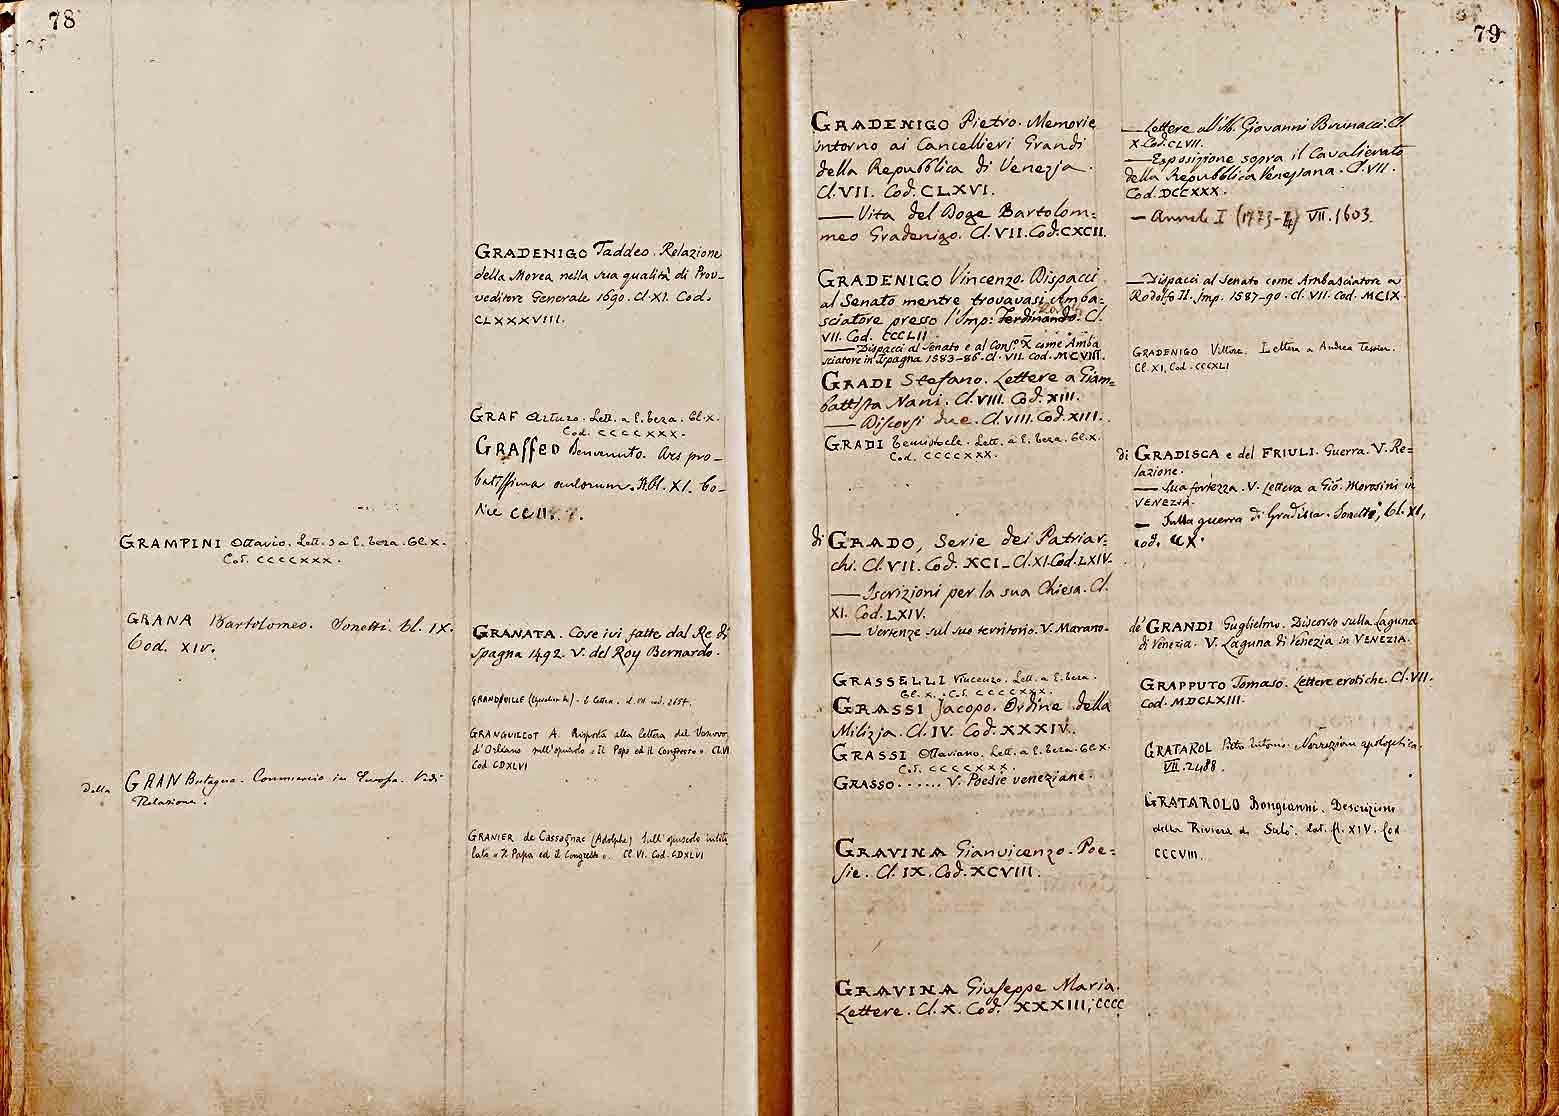 78
GRAMPINI Ottavio. Lett. 3 a E. Teza. Cl. X.
Cod. CCCCXXX.
GRANA Bartolomeo. Sonetti. Cl. IX.
Cod. XIV.
della GRAN Bretagna. Commercio in Europa. Vedi
Relazione.
GRADENIGO Taddeo. Relazione
della Morea nella sua qualità di Prov-
veditore Generale 1690. Cl. XI. Cod.
CLXXXVIII.
GRAF Arturo. Lett. a E. Teza. Cl. X.
Cod. CCCCXXX.
GRAFFEO Benvenuto. Ars pro-
batissima oculorum. Cl. XI. Co-
dice CCII.
GRANATA. Cose ivi fatte dal Re di
Spagna 1492. V. del Roy Bernardo.
GRANDVILLE
GRANGUILLOT A. Risposta alla lettera del Vescovo
d'Orleans sull'opuscolo "Il Papa ed il Congresso". Cl. VI
Cod. CDXLVI
GRANIER de Cassagnac (Adolphe) Sull'opuscolo intito
lato "Il Papa ed il Congresso". Cl. VI. Cod. CDXLVI
79
GRADENIGO Pietro. Memorie
intorno ai Cancellieri Grandi
della Repubblica di Venezia.
Cl. VII. Cod. CLXVI.
— Vita del Doge Bartolom:
meo Gradenigo. Cl. VII. Cod. CXCII.
GRADENIGO Vincenzo. Dispacci
al Senato mentre trovavasi Amba:
sciatore presso l'Imp: Ferdinando. Cl.
VII. Cod. CCCLII.
— Dispacci al Senato e al Cons.º X come Amba
sciatore in Ispagna 1583-86. Cl. VII. Cod. MCVIII.
GRADI Stefano. Lettere a Giam-
battista Nani. Cl. VIII. Cod. XIII.
— Discorsi due. Cl. VIII. Cod. XIII.
GRADI Temistocle. Lett. a E. Teza. Cl. X.
Cod. CCCCXXX.
di GRADO, Serie dei Patriar:
chi. Cl. VII. Cod. XCI_ Cl. XI. Cod. LXIV.
— Iscrizioni per la sua Chiesa. Cl.
XI. Cod. LXIV.
— Vertenze sul suo territorio. V. Marano.
GRASSELLI Vincenzo. Lett. a E. Teza.
Cl. X. Cod. CCCCXXX.
GRASSI Jacopo. Ordine della
Milizia. Cl. IV. Cod. XXXIV.
GRASSI Ottaviano. Lett. a E. Teza. Cl. X.
Cod. CCCCXXX.
GRASSO . . . . . . V. Poesie veneziane.
GRAVINA Gianvicenzo. Poe:
sie. Cl. IX. Cod. XCVIII.
GRAVINA Giuseppe Maria.
Lettere. Cl. X. Cod. XXXIII, CCCC
— Lettere all'Ab. Giovanni Brunacci. Cl.
X. Cod. CLVII.
— Esposizione sopra il Cavalierato
della Repubblica Veneziana. Cl. VII.
Cod. DCCXXX.
— Annali I (1773-4) VII. 1603.
— Dispacci al Senato come Ambasciatore a
Rodolfo II. Imp. 1587-90. Cl. VII. Cod. MCIX.
GRADENIGO Vittore. Lettera a Andrea Tessier.
Cl. XI. Cod. CCCXLI
di GRADISCA e del FRIULI. Guerra. V. Re=
lazione.
— Sua fortezza. V. Lettera a Giõ. Morosini in
VENEZIA.
— Sulla guerra di Gradisca. Sonetto, Cl. XI,
cod. CCX.
de' GRANDI Guglielmo. Discorso sulla Laguna
di Venezia. V. Laguna di Venezia in VENEZIA.
GRAPPUTO Tomaso. Lettere erotiche. Cl. VII.
Cod. MDCLXIII.
GRATAROL Pietro Antonio. Narrazione apologetica.
VII. 2488.
GRATAROLO Bongianni. Descrizione
della Riviera di Salò. Lat. Cl. XIV. Cod
CCCVIII.